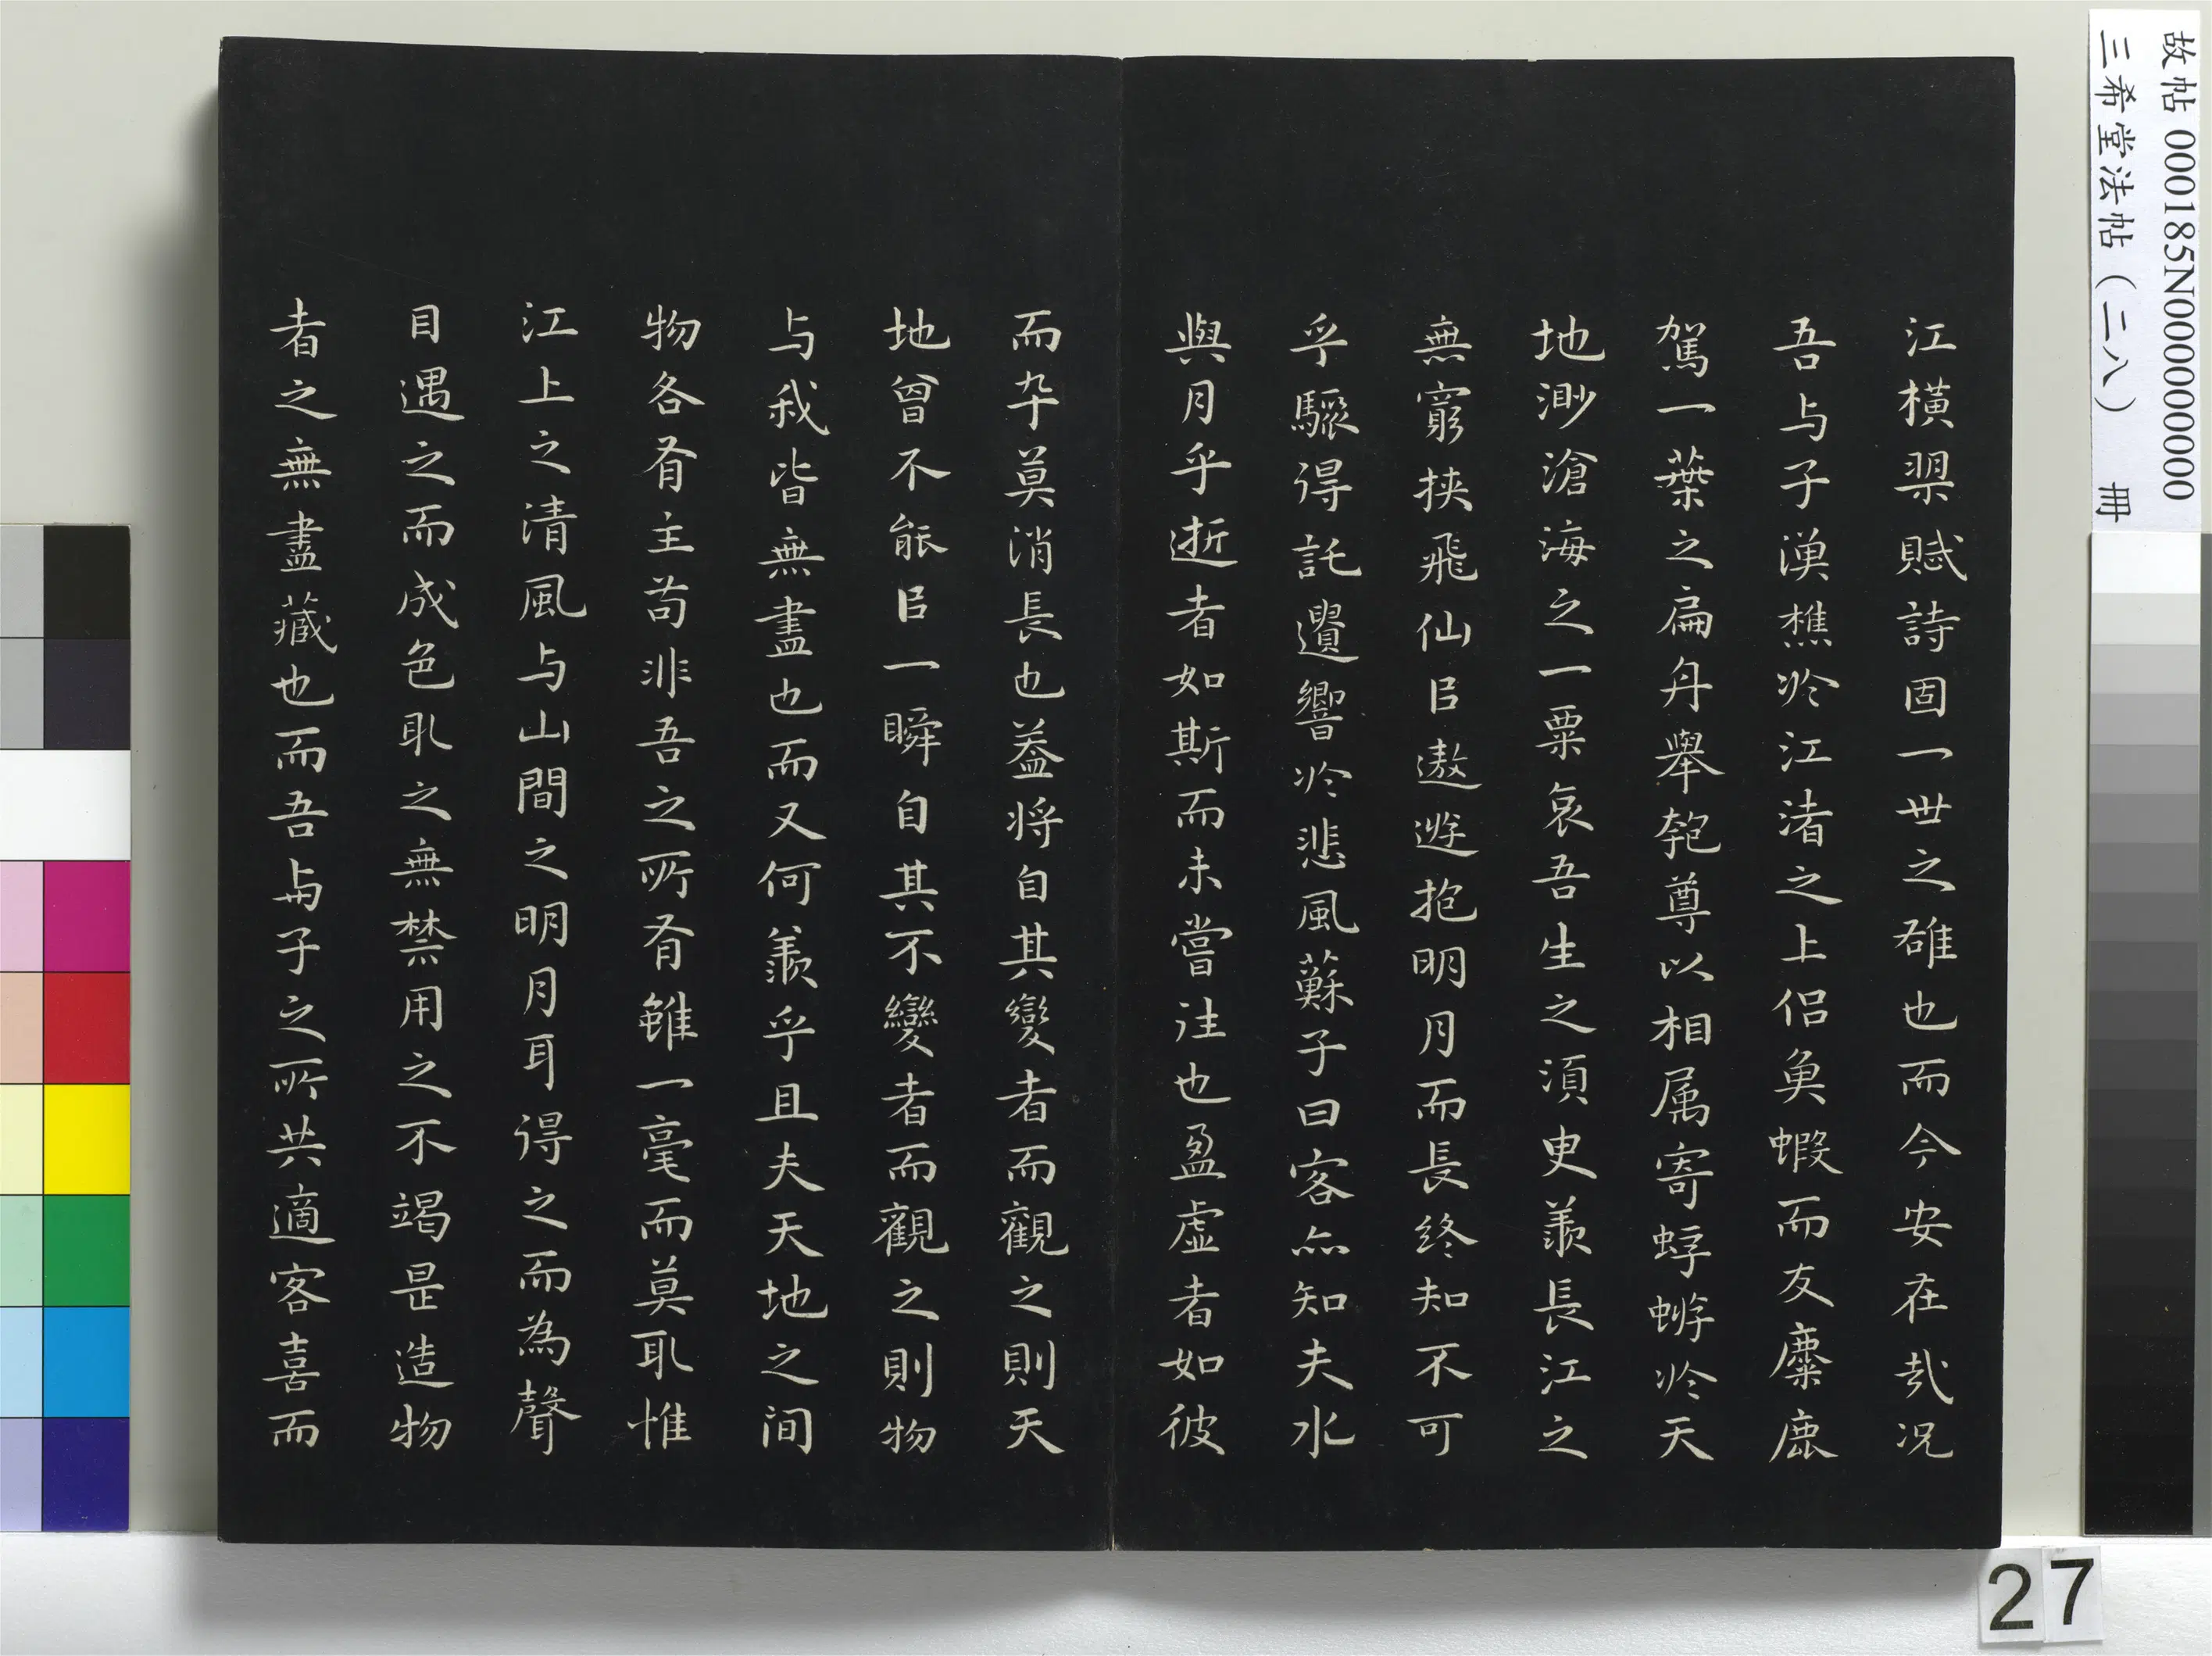 江橫槊賦詩固一世之雄也而今安在哉况
吾与子漁樵於江渚之上侣魚蝦而友麋鹿
駕一葉之扁舟舉匏尊以相属寄蜉蝣於天
地渺滄海之一粟哀吾生之須臾羨長江之
無窮挾飛仙㠯遨遊抱明月而長终知不可
乎驟得託遺響於悲風蘇子曰客亦知夫水
與月乎逝者如斯而未嘗往也盈虚者如彼
而卒莫消長也葢将自其變者而觀之則天
地曾不能㠯一瞬自其不變者而觀之則物
与我皆無盡也而又何羨乎且夫天地之间
物各有主苟非吾之所有雖一毫而莫取惟
江上之清風与山間之明月耳得之而為聲
目遇之而成色取之無禁用之不竭是造物
者之無盡藏也而吾與子之所共適客喜而
故帖 000185N000000000
三希堂法帖（二八） 冊
27